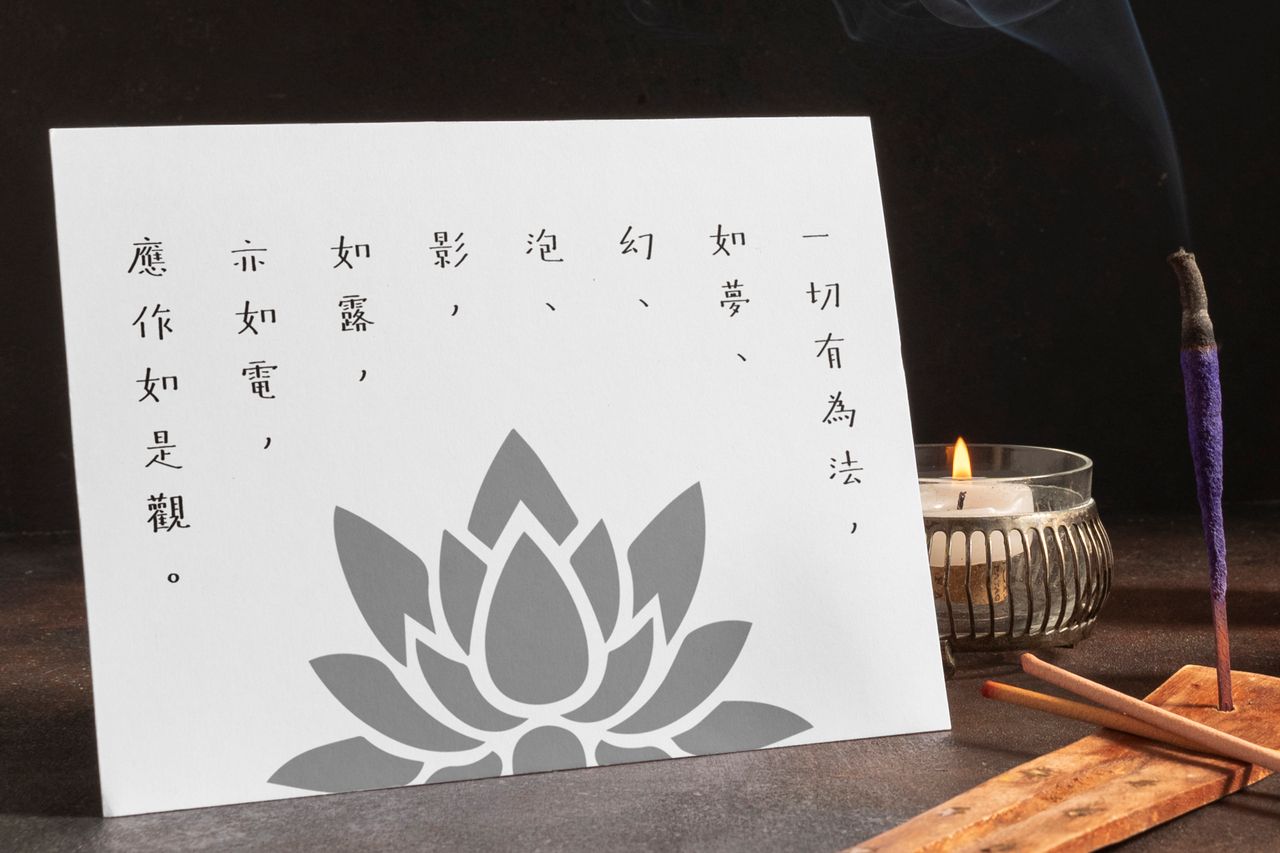 一切有為法，
如夢、
幻、
泡、
影，
如露，
亦如電，
應作如是觀。